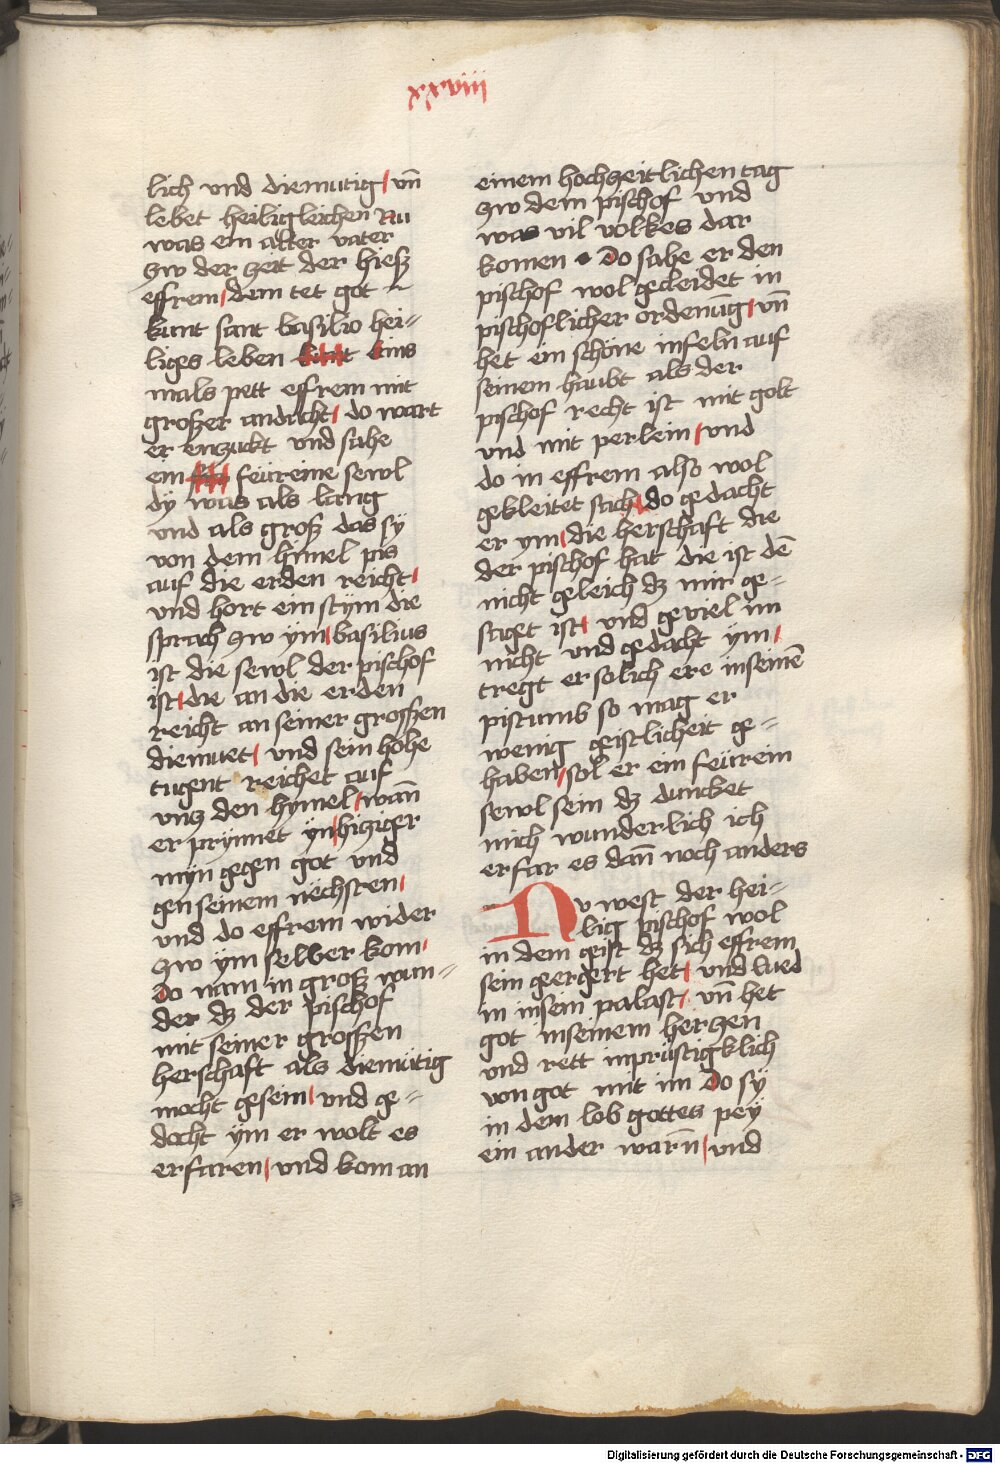 xxxviii
lich vnd diemutig / vn̄
lebet heiligleichen Nu
was ein alter vater
zw der zeit der hiesz
effrem / dem tet got
kunt sant basilio hei-
liges leben kunt eins
mals pett effrem mit
groszer andacht / do wart
er enzuckt vnd sahe
ein feureine sewl
dÿ was als lang
vnd als grosz das sÿ
von dem himel pis
auf die erden reicht /
vnd hort ein stÿm die
sprach zw ÿm / basilius
ist die sewl der pischof
ist / die an die erden
reicht an seiner groszen
diemuet / vnd sein hohe
tugent reichet auf
vnz den hymel / wan̄
er prÿnnet ÿn hiziger
mÿn gegen got vnd
gen seinem nechsten /
vnd do effrem wider
zw ÿm selber kom /
Do nam in grosz wun-
der dz der pischof
mit seiner groszen
herschaft als diemutig
mocht gesein / vnd ge-
docht ÿm er wolt es
erfaren / vnd kom an
einem hochzeitlichen tag
zw dem pischof vnd
was vil volkes dar
komen • Do sahe er den
pischof wol gecleidet in
pischoflicher ordenūg / vn̄
het ein schöne infeln auf
seinem haubt als der
pischof recht ist mit golt
vnd mit perlein / vnd
do in effrem also wol
gekleitet sach / do gedacht
er ym / die herschaft die
der pischof hat die ist dē
nicht geleich dz mir ge-
saget ist / vnd geviel im
nicht vnd gedacht ÿm /
tregt er solich ere in seinē
pistumb so mag er
wenig geistlicheit ge-
haben / sol er ein feürein
sewl sein dz duncket
mich wunderlich ich
erfar es dan̄ noch anders
Nv west der hei-
lig pischof wol
in dem geist dz sich effrem
sein geergert het / vnd lued
in in sein palast / vn̄ het
got in seinem herzen
vnd rett inprüstigklich
von got mit im Do sÿ
in dem lob gottes pey
ein ander warn̄ / vnd
Digitalisierung gefördert durch die Deutsche Forschungsgemeinschaft - DFG